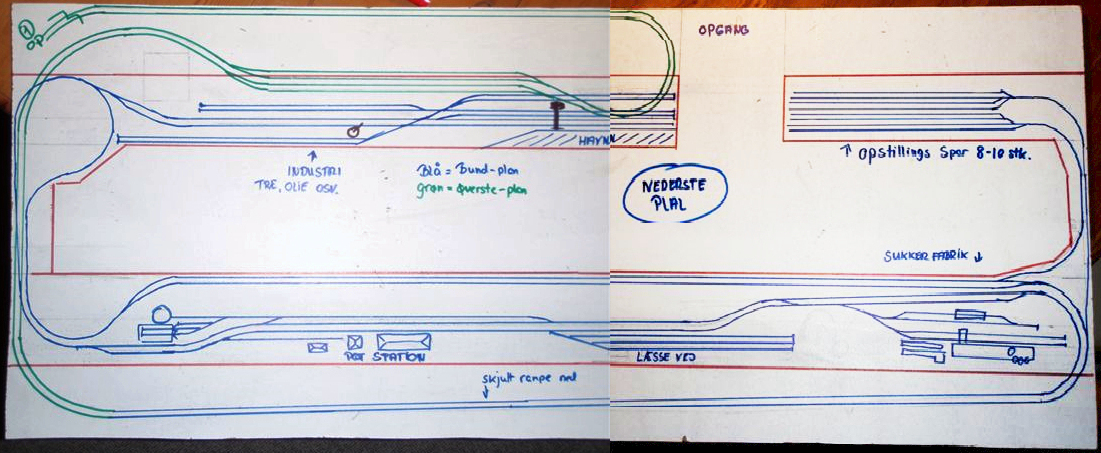 1
OP
OPGANG
HAVN
INDUSTRI
TRE, OLIE OSV.
Blå = Bund-plan
grøn = øverste-plan
NEDERSTE
PLAL
↑ opstillings spor 8-10 stk.
SUKKER FABRIK ↓
STATION
LÆSSE VEJ
skjult rampe ned